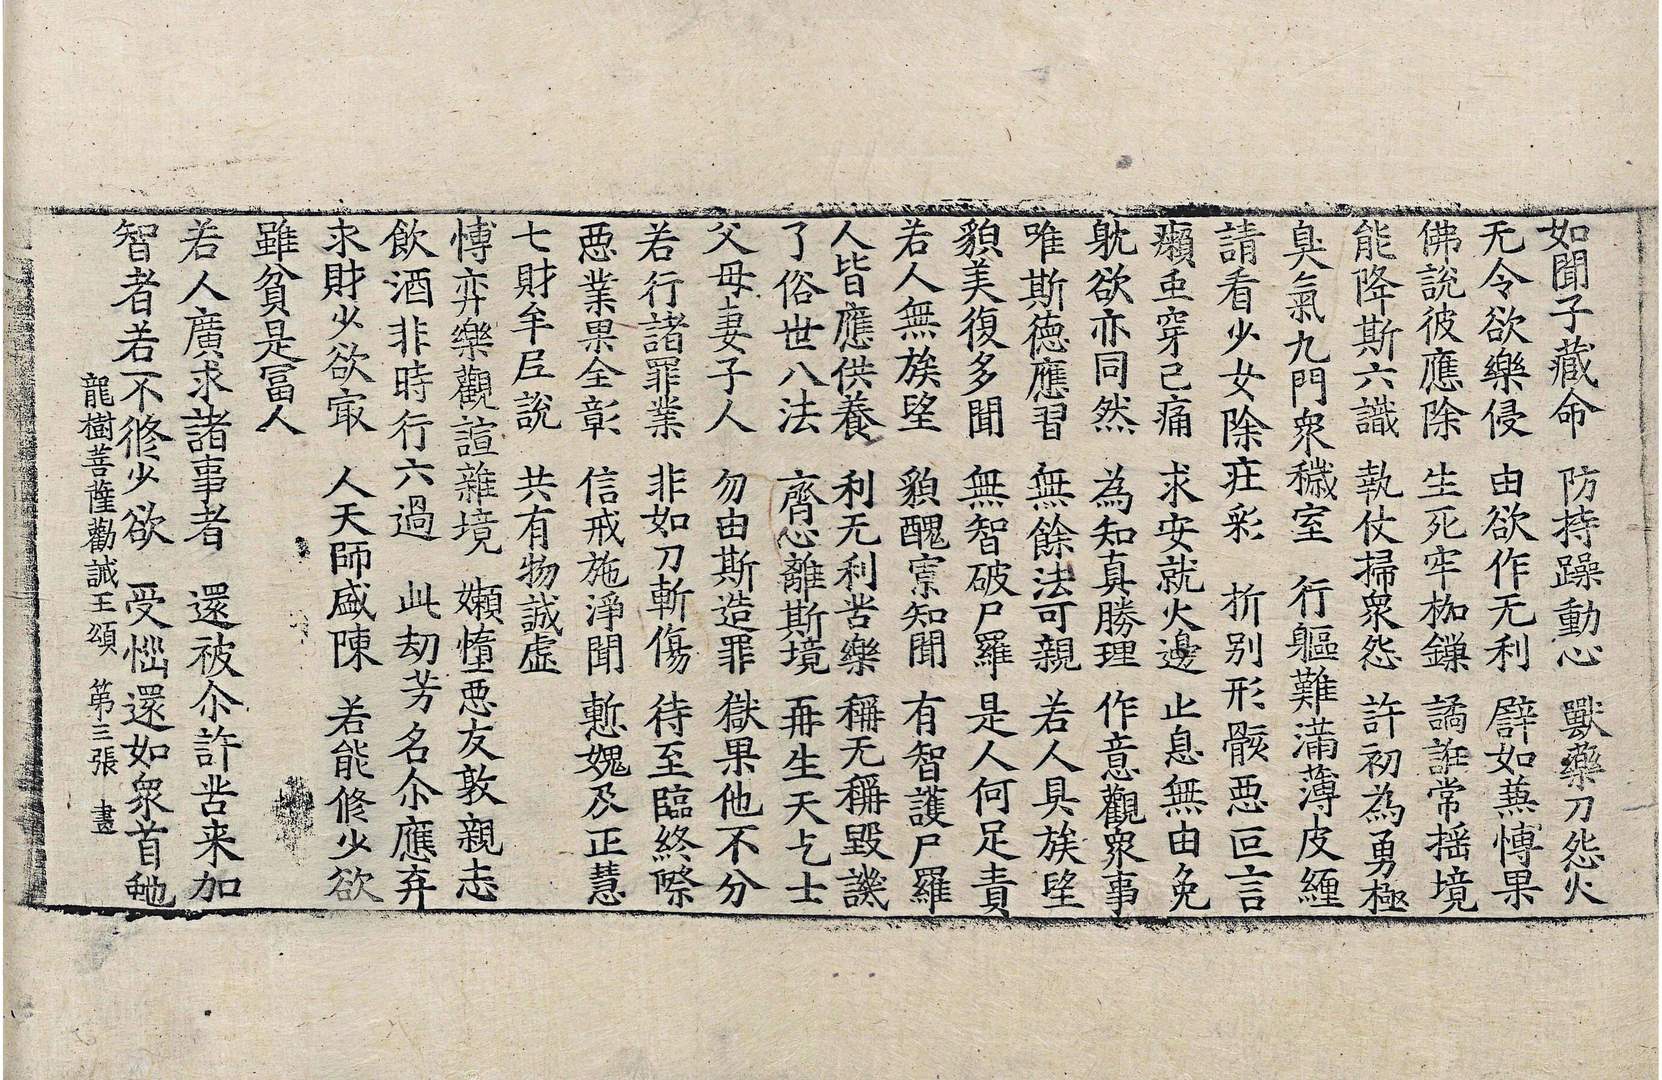 如聞子藏命　防持躁動心　獸藥刀怨火
无令欲樂侵　由欲作无利　譬如蒹愽果
佛說彼應除　生死牢枷鎌　譎誑常揺境
能降斯六識　執仗掃衆怨　許初為勇極
臭氣九門衆穢室　行軀難滿薄皮纏
請看少女除疘彩　折别形骸惡叵言
癩䖝穿己痛　求安就火邊　止息無由免
躭欲亦同然　為知真勝理　作意觀衆事
唯斯德應習　無餘法可親　若人具族望
貌美復多聞　無智破尸羅　是人何足責
若人無族望　貌醜寡知聞　有智護尸羅
人皆應供養　利无利苦樂　稱无稱毀譏
了俗世八法　齊心離斯境　再生天乞士
父母妻子人　勿由斯造罪　獄果他不分
若行諸罪業　非如刀斬傷　待至臨終際
惡業果全彰　信戒施淨聞　慙媿及正慧
七財牟尼說　共有物誠虛
愽弈樂觀諠雜境　嬾憜惡友敦親志
飲酒非時行六過　此劫芳名尒應弃
求財少欲㝡　人天師盛陳　若能修少欲
雖貧是冨人
若人廣求諸事者　還被尒許苦来加
智者若不修少欲　受惱還如衆首虵
龍樹菩薩勸誡王頌　第三張　晝